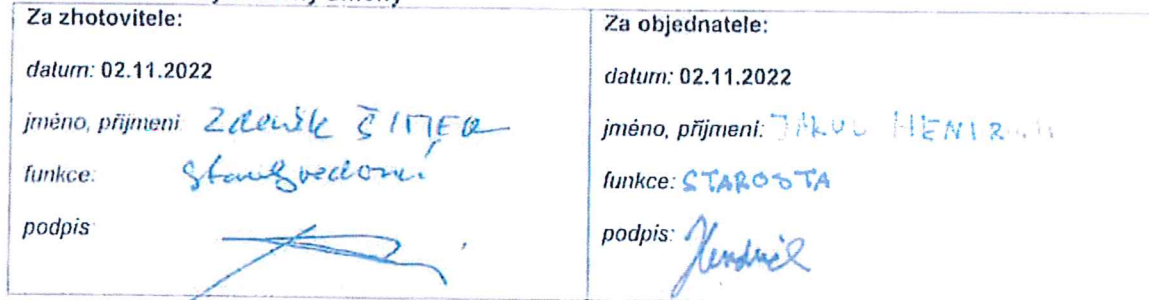 Za zhotovitele:
datum: 02.11.2022
jméno, příjmení: Zdeněk ŠIMER
funkce: stavbyvedoucí
podpis:
Za objednatele:
datum: 02.11.2022
jméno, příjmení:
funkce: STAROSTA
podpis: